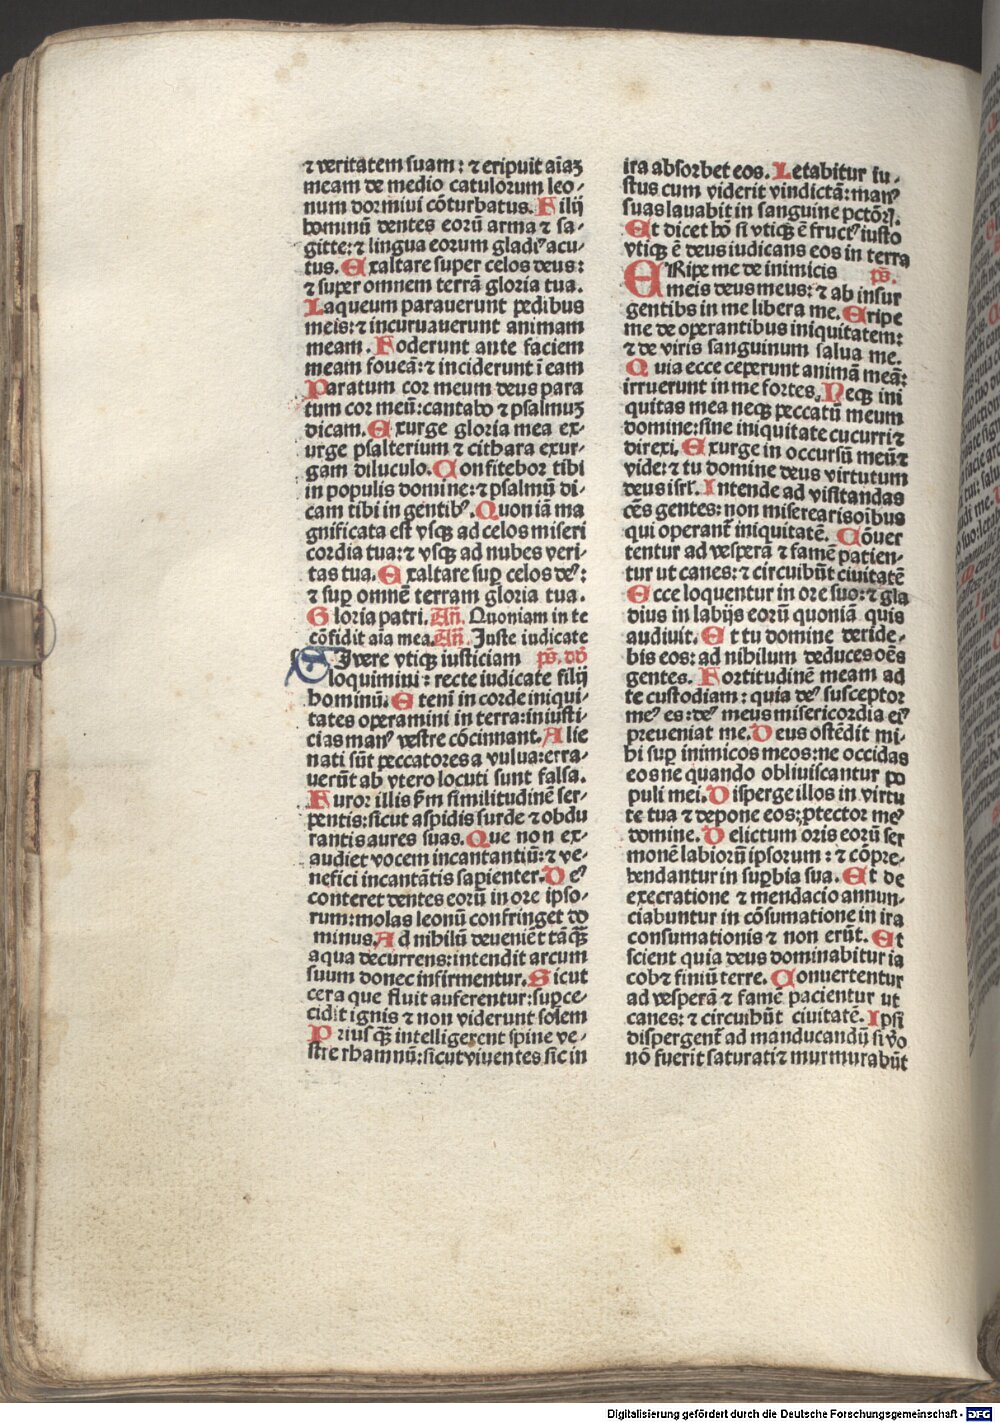 ⁊ veritatem suam: ⁊ eripuit aīaꝫ
meam de medio catulorum leo⸗
num dormiui cōturbatus. Filij
hominū dentes eorū arma ⁊ sa⸗
gitte: ⁊ lingua eorum gladiꝰ acu⸗
tus. Exaltare super celos deus:
⁊ super omnem terrā gloria tua.
Laqueum parauerunt pedibus
meis: ⁊ incuruauerunt animam
meam. Foderunt ante faciem
meam foueā: ⁊ inciderunt ī eam
Paratum cor meum deus para
tum cor meū: cantabo ⁊ psalmuꝫ
dicam. Exurge gloria mea ex⸗
urge psalterium ⁊ cithara exur⸗
gam diluculo. Confitebor tibi
in populis domine: ⁊ psalmū di⸗
cam tibi in gentibꝰ. Quoniā ma
gnificata est vsqꝫ ad celos miseri
cordia tua: ⁊ vsqꝫ ad nubes veri⸗
tas tua. Exaltare suꝑ celos deꝰ:
⁊ suꝑ omnē terram gloria tua.
Gloria patri. Añ. Quoniam in te
cōfidit aīa mea. Añ. Juste iudicate
SIvere vtiqꝫ iusticiam ps̄. dd̄
loquimini: recte iudicate filij
hominū. Etenī in corde iniqui⸗
tates operamini in terra: iniusti⸗
cias manꝰ vestre cōcinnant. Alie
nati sūt peccatores a vulua: erra⸗
uerūt ab vtero locuti sunt falsa.
Furor illis s̄m similitudinē ser⸗
pentis: sicut aspidis surde ⁊ obdu
rantis aures suas. Que non ex⸗
audiet vocem incantantiū: ⁊ ve⸗
nefici incantātis sapienter. Deꝰ
conteret dentes eorū in ore ipso⸗
rum: molas leonū confringet do
minus. Ad nihilū deueniēt tāqꝫ̄
aqua decurrens: intendit arcum
suum donec infirmentur. Sicut
cera que fluit auferentur: suꝑce⸗
cidit ignis ⁊ non viderunt solem
Priusqꝫ̄ intelligerent spine ve⸗
stre rhamnū: sicut viuentes sic in
ira absorbet eos. Letabitur iu⸗
stus cum viderit vindictā: manꝰ
suas lauabit in sanguine pctōꝝ.
Et dicet hō si vtiqꝫ ē fructꝰ iusto
vtiqꝫ ē deus iudicans eos in terra
ERipe me de inimicis ps̄.
meis deus meus: ⁊ ab insur
gentibs in me libera me. Eripe
me de operantibus iniquitatem:
⁊ de viris sanguinum salua me.
Quia ecce ceperunt animā meā:
irruerunt in me fortes. Neqꝫ ini
quitas mea neqꝫ peccatū meum
domine: sine iniquitate cucurri ⁊
direxi. Exurge in occursū meū ⁊
vide: ⁊ tu domine deus virtutum
deus isrl̄. Intende ad visitandas
oēs gentes: non miserearis oībus
qui operant̄ iniquitatē. Cōuer
tentur ad vesperā ⁊ famē patien⸗
tur ut canes: ⁊ circuibūt ciuitatē
Ecce loquentur in ore suo: ⁊ gla
dius in labijs eorū quoniā quis
audiuit. Et tu domine deride⸗
bis eos: ad nihilum deduces oēs
gentes. Fortitudinē meam ad
te custodiam: quia deꝰ susceptor
meꝰ es: deꝰ meus misericordia eiꝰ
preueniat me. Deus ostēdit mi⸗
hi suꝑ inimicos meos: ne occidas
eos ne quando obliuiscantur po
puli mei. Disperge illos in virtu
te tua ⁊ depone eos: ꝓtector meꝰ
domine. Delictum oris eorū ser
monē labiorū ipsorum: ⁊ cōpre⸗
hendantur in suꝑbia sua. Et de
execratione ⁊ mendacio annun⸗
ciabuntur in cōsumatione in ira
consumationis ⁊ non erūt. Et
scient quia deus dominabitur ia
cob ⁊ finiū terre. Conuertentur
ad vesperā ⁊ famē pacientur ut
canes: ⁊ circuibūt ciuitatē. Ipsi
dispergent̄ ad manducandū si v̄o
nō fuerit saturati ⁊ murmurabūt
Digitalisierung gefördert durch die Deutsche Forschungsgemeinschaft - DFG